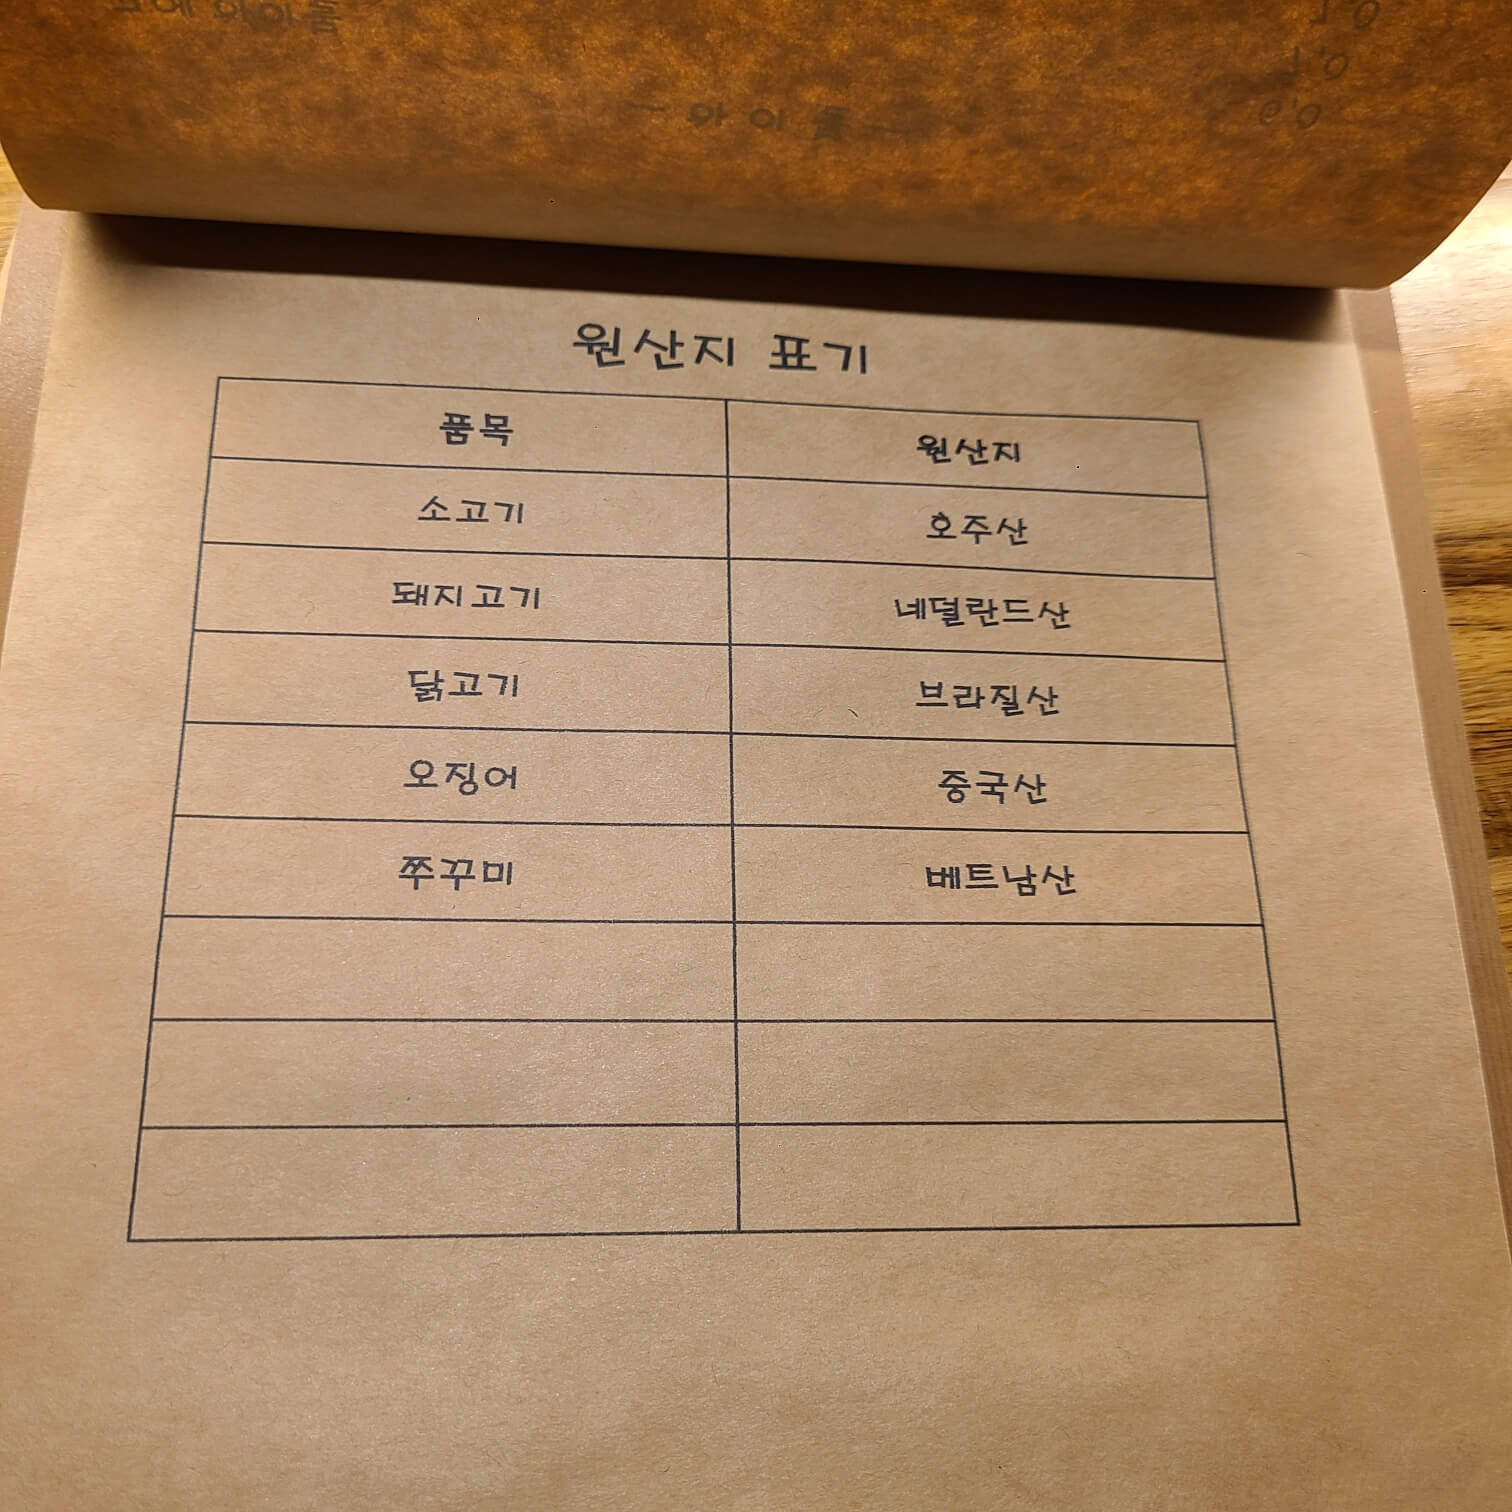 원산지 표기
품목 원산지
소고기 호주산
돼지고기 네덜란드산
닭고기 브라질산
오징어 중국산
쭈꾸미 베트남산